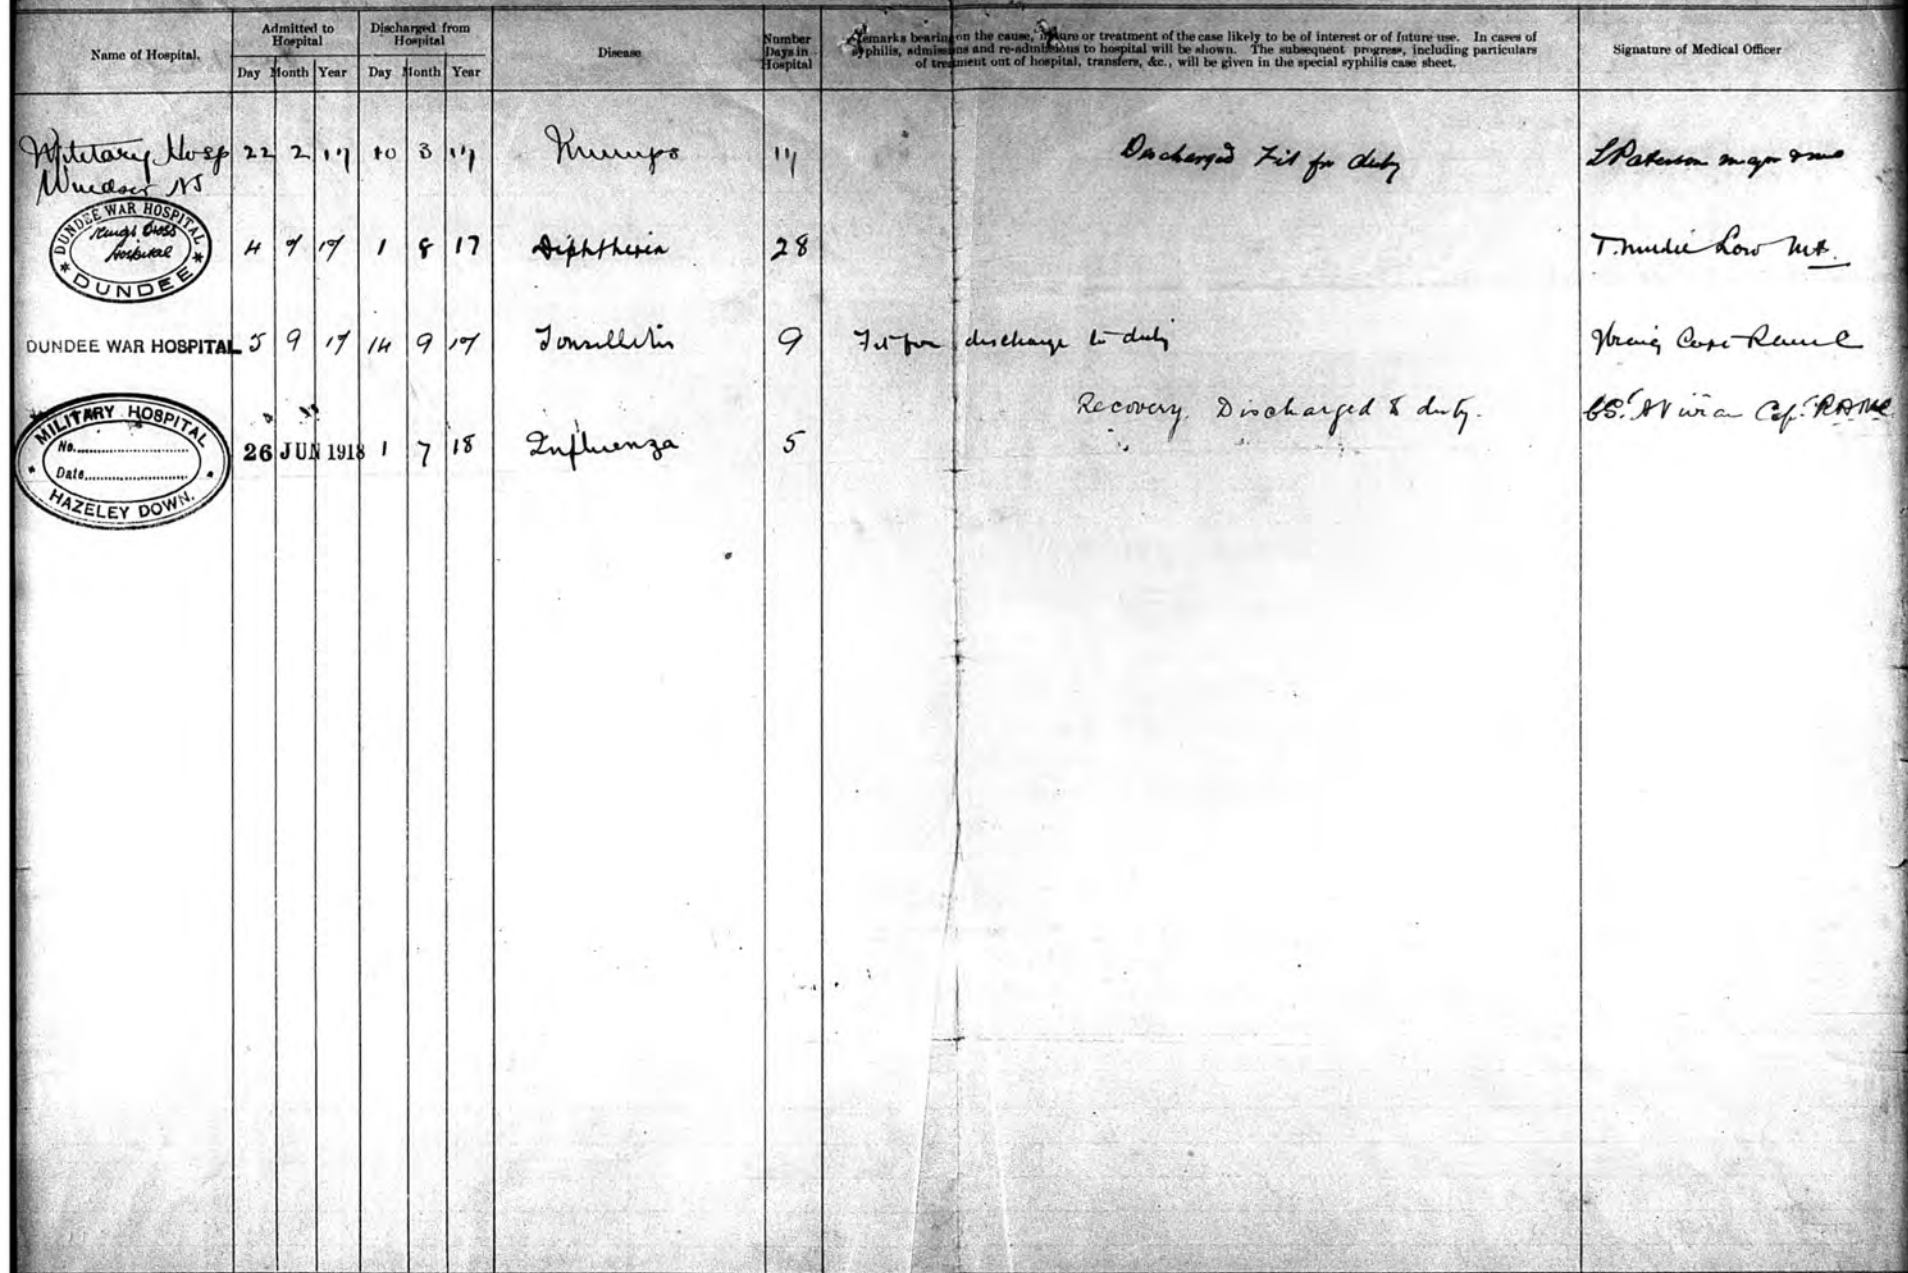 Name of Hospital.
Admitted to Hospital
Discharged from Hospital
Day Month Year Day Month Year
Disease
Number Days in Hospital
Remarks bearing on the cause, nature or treatment of the case likely to be of interest or of future use. In cases of
syphilis, admissions and re-admissions to hospital will be shown. The subsequent progress, including particulars
of treatment out of hospital, transfers, &c., will be given in the special syphilis case sheet.
Signature of Medical Officer
Military Hosp 22 2 17 10 3 17 17 Discharged Fit for duty L Paterson Major
Windsor NS
DUNDEE WAR HOSPITAL
Kings Cross
Hospital
DUNDEE
4 7 17 1 8 17 Diphtheria 28 T. Mudie Low
DUNDEE WAR HOSPITAL 5 9 17 14 9 17 Tonsillitis 9 Fit for discharge to duty Capt RAMC
MILITARY HOSPITAL
No.
Date
HAZELEY DOWN.
26 JUN 1918 1 7 18 Influenza 5 Recovery. Discharged to duty. Vivian Capt RAMC